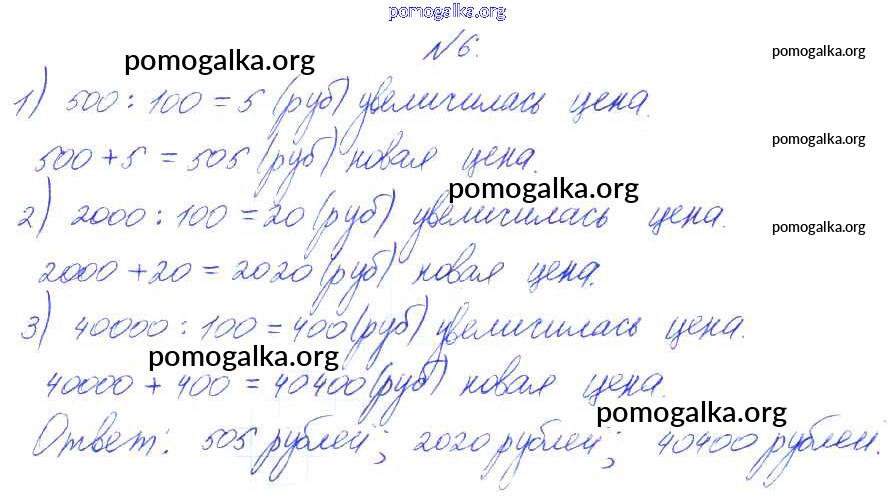 pomogalka.org
№6.
pomogalka.org pomogalka.org
1) 500 : 100 = 5 (руб) увеличилась цена.
pomogalka.org
500 + 5 = 505 (руб) новая цена.
pomogalka.org
2) 2000 : 100 = 20 (руб) увеличилась цена.
pomogalka.org
2000 + 20 = 2020 (руб) новая цена.
3) 40000 : 100 = 400 (руб) увеличилась цена.
pomogalka.org
40000 + 400 = 40400 (руб) новая цена.
pomogalka.org
Ответ: 505 рублей; 2020 рублей; 40400 рублей.